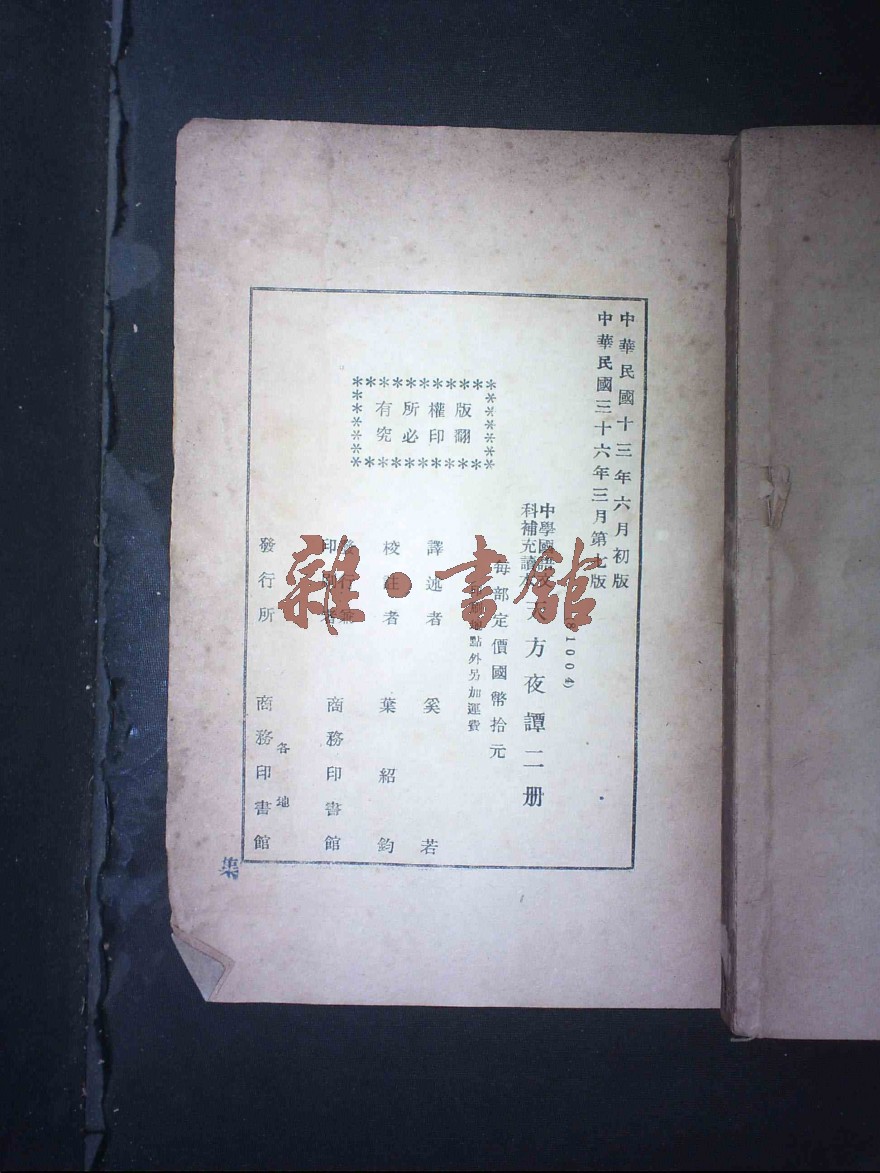 中華民國十三年六月初版
中華民國三十六年三月第七版
1004)
中學國語文
科補充讀本
天方夜譚二册
每部定價國幣拾元
地點外另加運費
版權所有
翻印必究
譯述者 奚若
校註者 葉紹鈞
發行兼
印刷者
商務印書館
各地
發行所 商務印書館
集
雜·書館